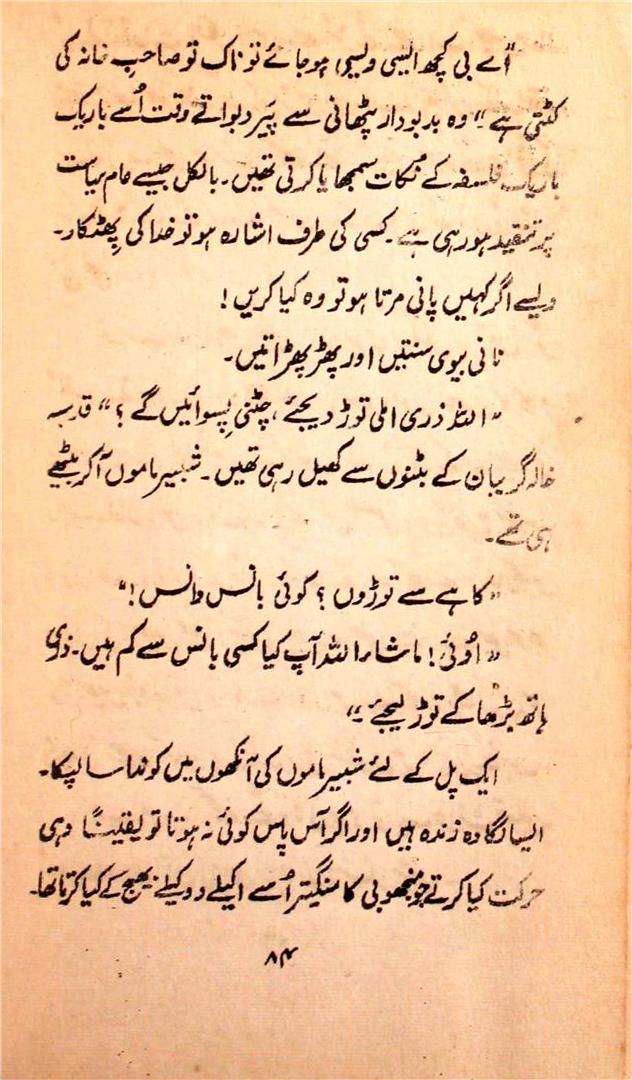 "اے بی کچھ ایسی ویسی ہو جائے تو ناک تو صاحبِ خانہ کی
کٹتی ہے" وہ بدبودار پٹھانی سے پَیر دبواتے وقت اُسے باریک
باریک فلسفہ کے نکات سمجھایا کرتی تھیں۔ بالکل جیسے عام سیاست
پر تنقید ہو رہی ہے۔ کسی کی طرف اشارہ ہو تو خدا کی پِھٹکار۔
ویسے اگر کہیں پانی مرتا ہو تو وہ کیا کریں!
نانی بیوی سنتیں اور پھڑپھڑاتیں۔
"اللہ ذری املی توڑ دیجئے، چٹنی پِسوائیں گے؟" قدسیہ
خالہ گریبان کے بٹنوں سے کھیل رہی تھیں۔ شبیر ماموں آ کر بیٹھے
ہی تھے۔
"کاہے سے توڑوں؟ کوئی بانس وانس!"
"اُوئی! ماشاء اللہ آپ کیا کسی بانس سے کم ہیں۔ ذری
ہاتھ بڑھا کے توڑ لیجئے"
ایک پل کے لئے شبیر ماموں کی آنکھوں میں کوندا سا لپکا۔
ایسا لگا وہ زندہ ہیں اور اگر آس پاس کوئی نہ ہوتا تو یقیناً وہی
حرکت کیا کرتے جو منجھو بی کا منگیتر اُسے اکیلے دوکیلے بھیج کے کیا کرتا تھا۔
۸۴